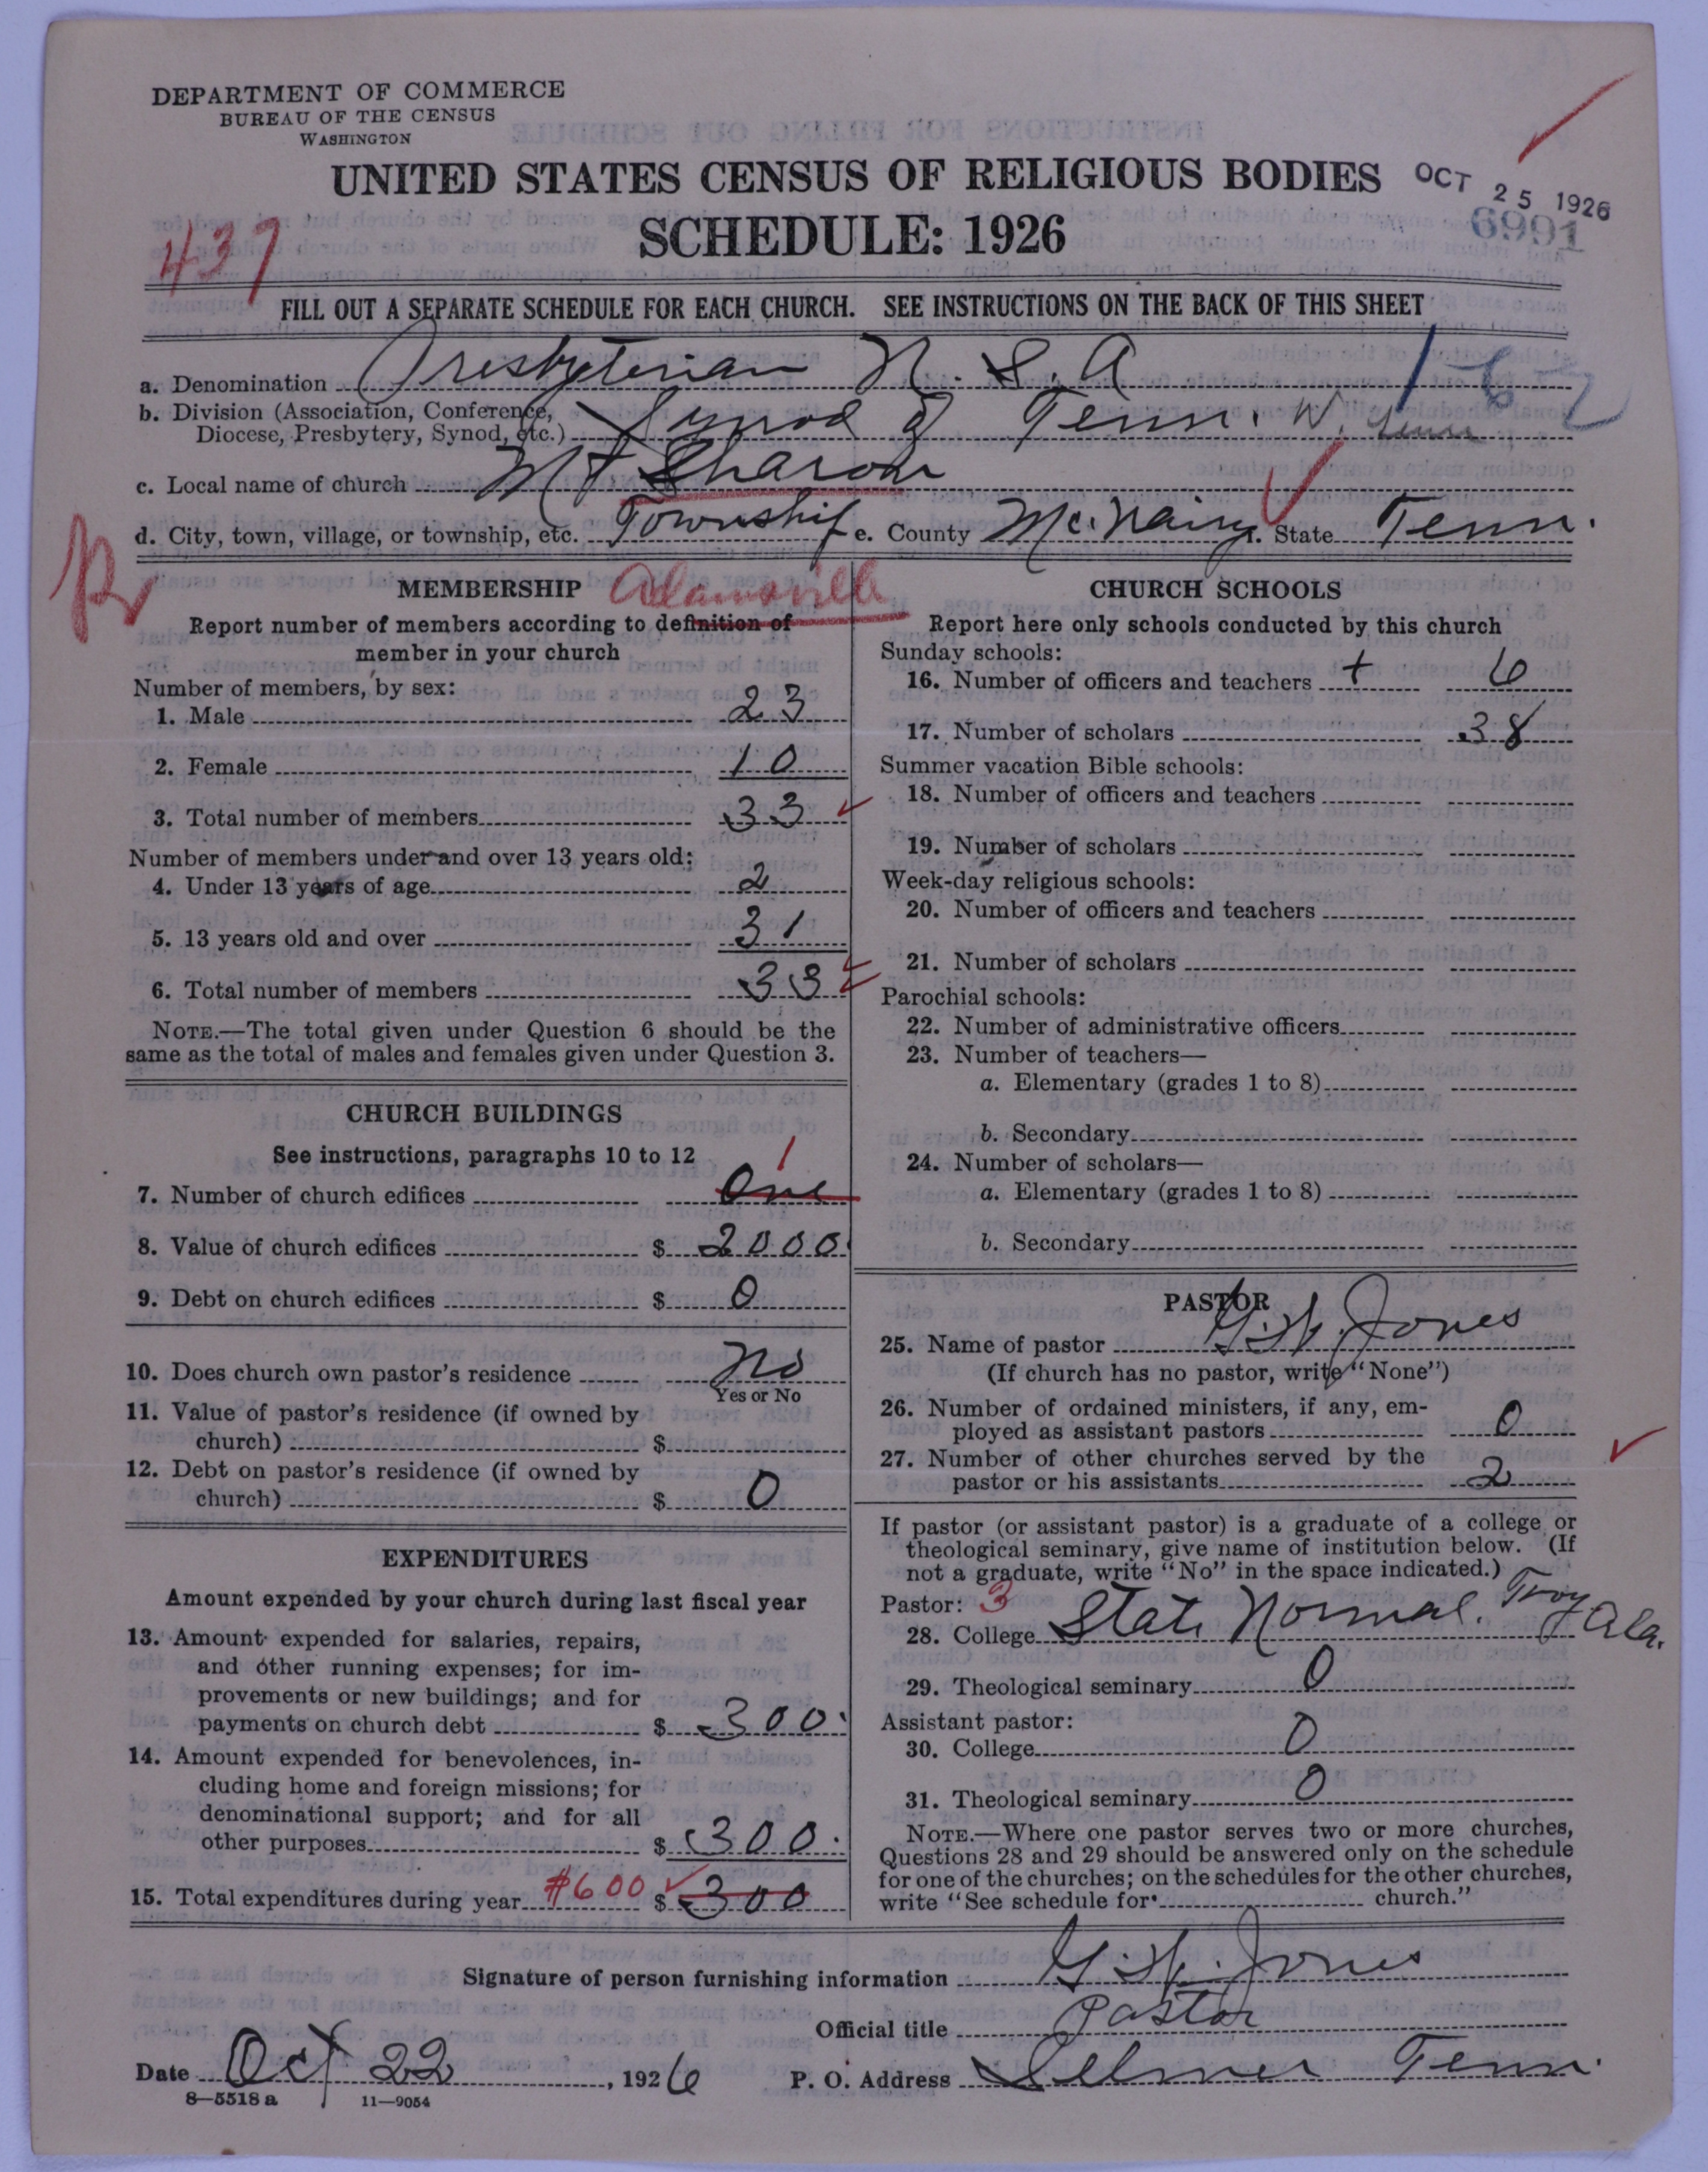 DEPARTMENT OF COMMERCE
BUREAU OF THE CENSUS
WASHINGTON
UNITED STATES CENSUS OF RELIGIOUS BODIES
OCT 25 1926
6991
SCHEDULE: 1926
437
FILL OUT A SEPARATE SCHEDULE FOR EACH CHURCH. SEE INSTRUCTIONS ON THE BACK OF THIS SHEET
a. Denomination Presbyterian U. S. A 162
b. Division (Association, Conference,
Diocese, Presbytery, Synod, etc.) Synod of Tenn. W. Tenn
c. Local name of church Mt Sharon
d. City, town, village, or township, etc. Township e. County McNairy f. State Tenn.
MEMBERSHIP Adamsville
Report number of members according to definition of
member in your church
Number of members, by sex:
1. Male 23
2. Female 10
3. Total number of members 33
Number of members under and over 13 years old:
4. Under 13 years of age 2
5. 13 years old and over 31
6. Total number of members 33
NOTE.—The total given under Question 6 should be the
same as the total of males and females given under Question 3.
CHURCH BUILDINGS
See instructions, paragraphs 10 to 12
1
7. Number of church edifices One
8. Value of church edifices $ 2000.
9. Debt on church edifices $ 0
10. Does church own pastor's residence No
Yes or No
11. Value of pastor's residence (if owned by
church) $
12. Debt on pastor's residence (if owned by
church) $ 0
EXPENDITURES
Amount expended by your church during last fiscal year
13. Amount expended for salaries, repairs,
and other running expenses; for im-
provements or new buildings; and for
payments on church debt $ 300.
14. Amount expended for benevolences, in-
cluding home and foreign missions; for
denominational support; and for all
other purposes $ 300.
15. Total expenditures during year #600 $ 300
CHURCH SCHOOLS
Report here only schools conducted by this church
Sunday schools:
16. Number of officers and teachers + 6
17. Number of scholars 38
Summer vacation Bible schools:
18. Number of officers and teachers
19. Number of scholars
Week-day religious schools:
20. Number of officers and teachers
21. Number of scholars
Parochial schools:
22. Number of administrative officers
23. Number of teachers—
a. Elementary (grades 1 to 8)
b. Secondary
24. Number of scholars—
a. Elementary (grades 1 to 8)
b. Secondary
PASTOR
25. Name of pastor G. W. Jones
(If church has no pastor, write "None")
26. Number of ordained ministers, if any, em-
ployed as assistant pastors 0
27. Number of other churches served by the
pastor or his assistants 2
If pastor (or assistant pastor) is a graduate of a college or
theological seminary, give name of institution below. (If
not a graduate, write "No" in the space indicated.)
Pastor: 3
28. College State Normal. Troy Ala.
29. Theological seminary 0
Assistant pastor:
30. College 0
31. Theological seminary 0
NOTE.—Where one pastor serves two or more churches,
Questions 28 and 29 should be answered only on the schedule
for one of the churches; on the schedules for the other churches,
write "See schedule for church."
Signature of person furnishing information G. W. Jones
Official title Pastor
Date Oct 22, 1926 P. O. Address Selmer Tenn.
8—5518 a 11—9054